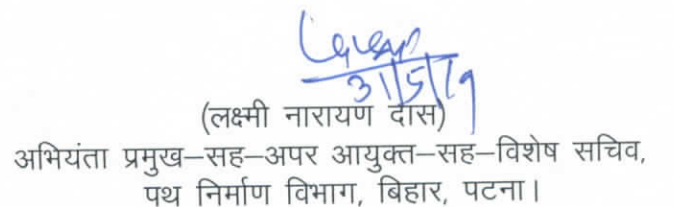 31/5/19
(लक्ष्मी नारायण दास)
अभियंता प्रमुख–सह–अपर आयुक्त–सह–विशेष सचिव,
पथ निर्माण विभाग, बिहार, पटना।